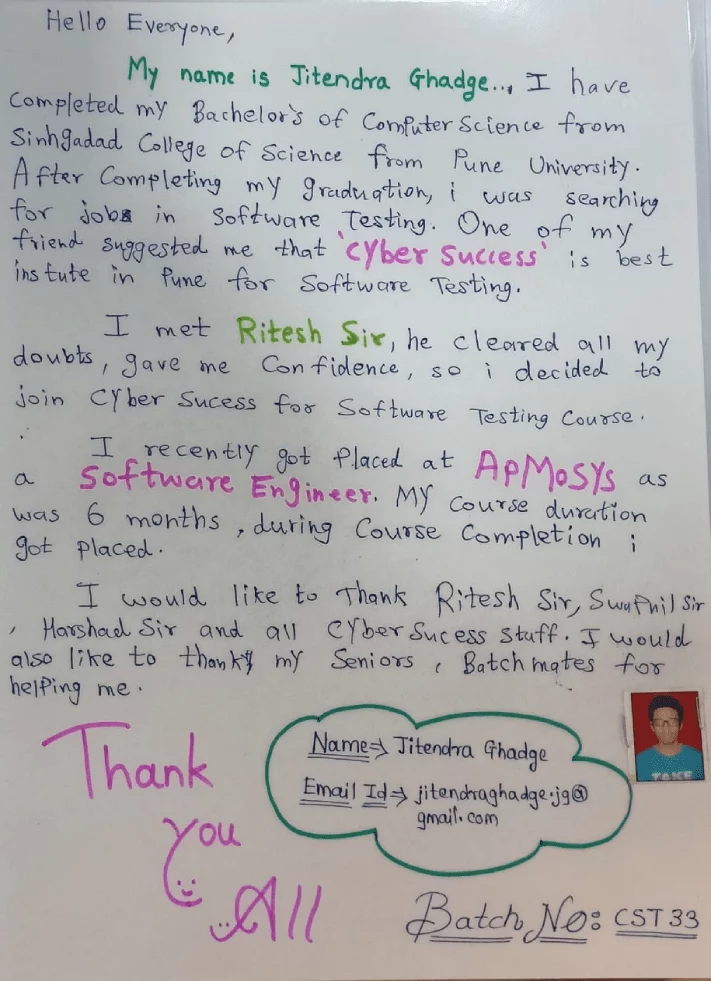 Hello Everyone,
My name is Jitendra Ghadge..., I have
Completed my Bachelor's of Computer Science from
Sinhgadad College of Science from Pune University.
After Completing my graduation, i was searching
for jobs in Software Testing. One of my
friend suggested me that 'Cyber Success' is best
instute in Pune for Software Testing.
I met Ritesh Sir, he cleared all my
doubts, gave me Confidence, so i decided to
join Cyber Sucess for Software Testing Course.
I recently got Placed at ApMoSys as
a Software Engineer. My Course duration
was 6 months, during Course Completion i
got placed.
I would like to Thank Ritesh Sir, Swapnil Sir
, Harshad Sir and all Cyber Sucess Stuff. I would
also like to thank my Seniors, Batchmates for
helping me.
Thank
you
All
Name⇒ Jitendra Ghadge
Email Id⇒ jitendraghadge.jg@
gmail.com
TAKE
Batch No: CST 33